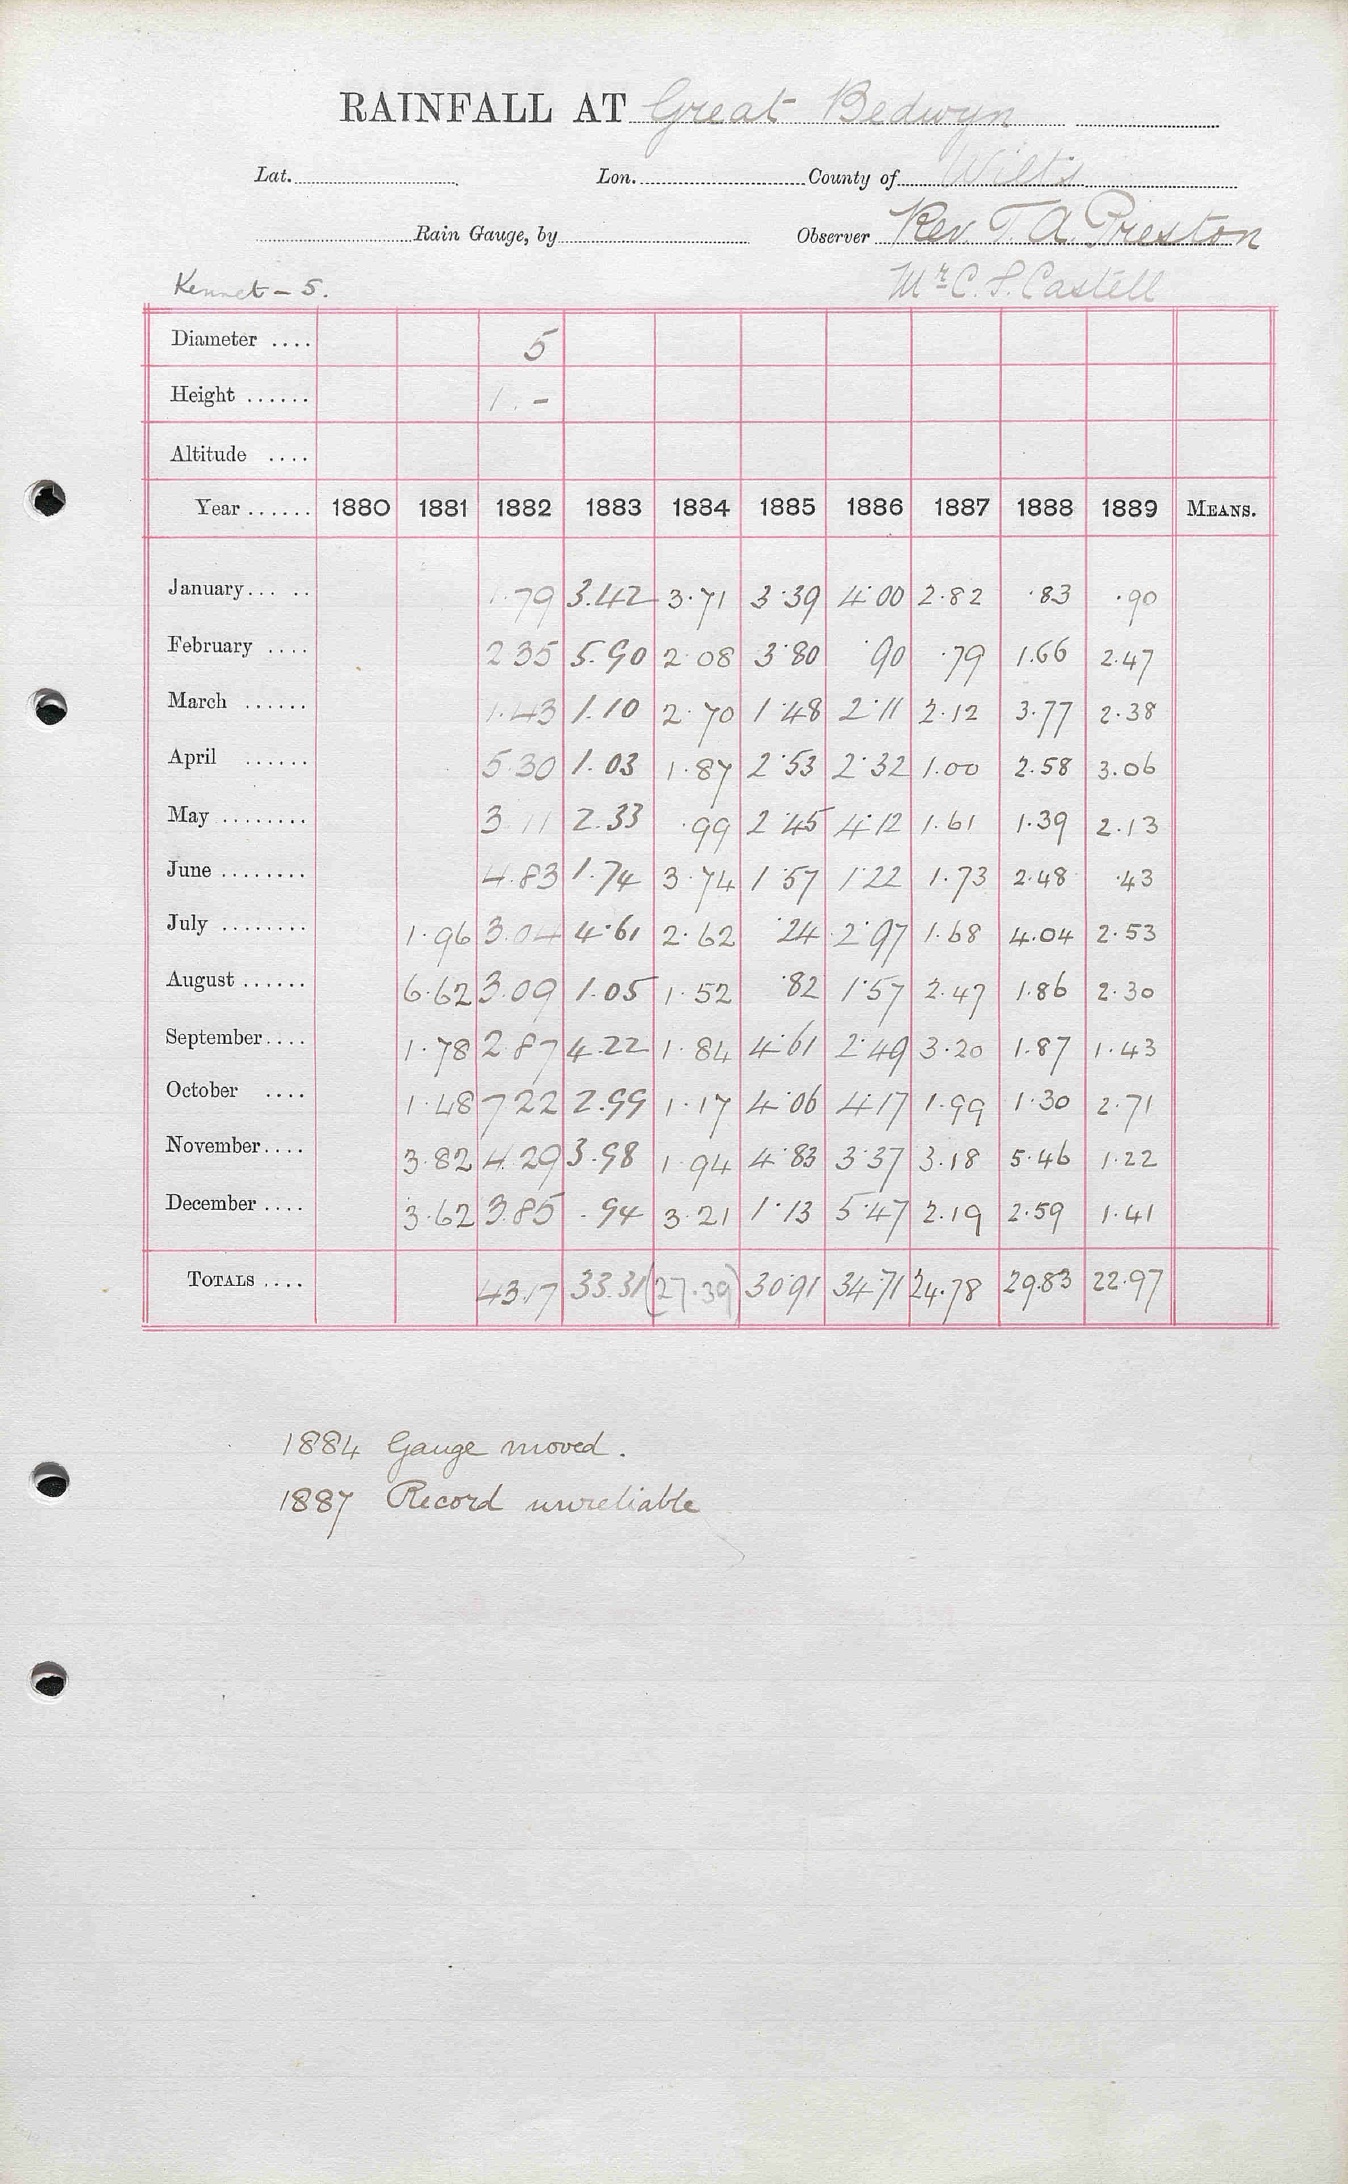 RAINFALL AT Great Bedwyn
Lat. Lon. County of Wilts
Rain Gauge, by Observer Rev. T. A. Preston
Kennet - 5. Mr C. S. Castell
Diameter .... 5
Height ...... 1. -
Altitude ....
Year ...... 1880 1881 1882 1883 1884 1885 1886 1887 1888 1889 MEANS.
January ... .. 1.79 3.42 3.71 3.39 4.00 2.82 .83 .90
February .... 2.35 5.90 2.08 3.80 .90 .79 1.66 2.47
March ...... 1.43 1.10 2.70 1.48 2.11 2.12 3.77 2.38
April ...... 5.30 1.03 1.87 2.53 2.32 1.00 2.58 3.06
May ........ 3.11 2.33 .99 2.45 4.12 1.61 1.39 2.13
June ........ 4.83 1.74 3.74 1.57 1.22 1.73 2.48 .43
July ........ 1.96 3.04 4.61 2.62 .24 2.97 1.68 4.04 2.53
August ...... 6.62 3.09 1.05 1.52 .82 1.57 2.47 1.86 2.30
September .... 1.78 2.87 4.22 1.84 4.61 2.49 3.20 1.87 1.43
October .... 1.48 7.22 2.99 1.17 4.06 4.17 1.99 1.30 2.71
November .... 3.82 4.29 3.98 1.94 4.83 3.37 3.18 5.46 1.22
December .... 3.62 3.85 .94 3.21 1.13 5.47 2.19 2.59 1.41
TOTALS .... 43.17 33.31 (27.39) 30.91 34.71 24.78 29.83 22.97
1884 Gauge moved.
1887 Record unreliable